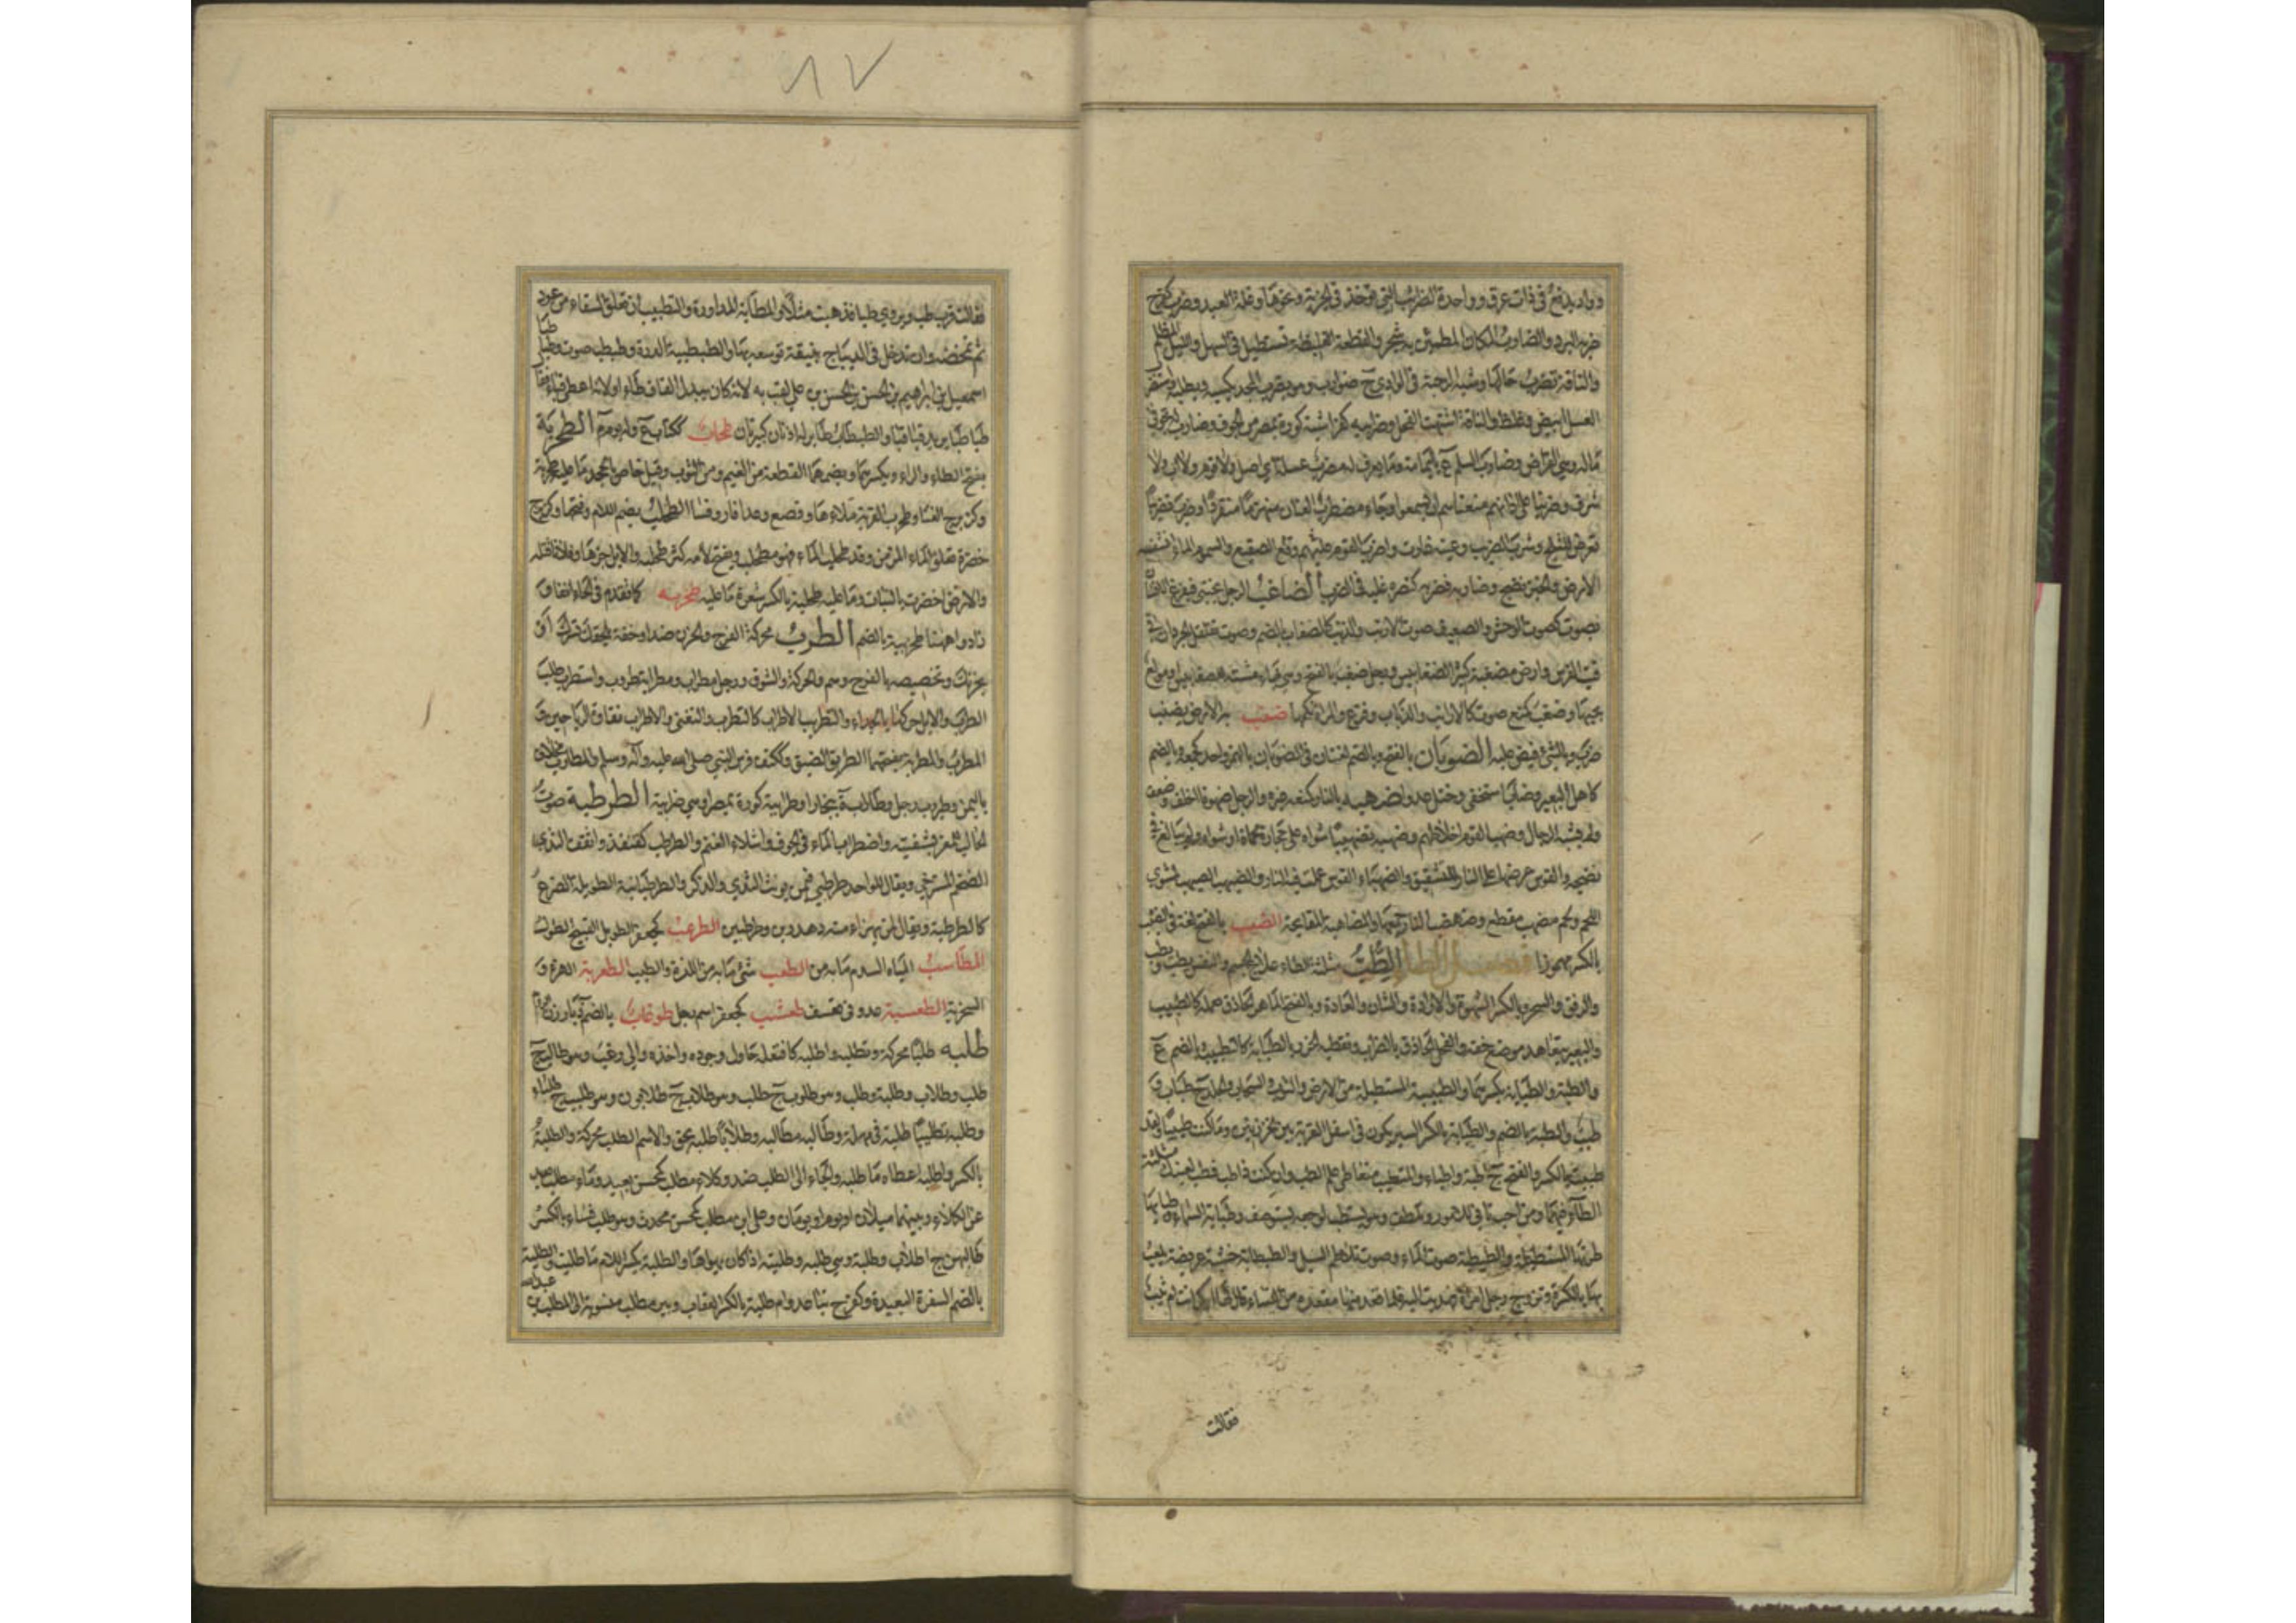 ٨٧
وواد يدفع في ذات عرق وواحدة الضرائب التي تؤخذ في الجزية ونحوها وغلة العبد وضرب كفرح
ضربه البرد والضارب المكان المطمئن به شجر والقطعة الغليظة تستطيل في السهل والليل المظلم
والناقة تضرب حالبها وشبه الرحبة في الوادي ج ضوارب وهو يضرب المجد يكسبه ويطلبه واستضرب
العسل ابيض وغلظ والناقة اشتهت الفحل وضرابية كقراسية كورة بمصر من الحوف
ماله وهي القراض وضارب السلم ع باليمامة وما يعرف له مضرب عسلة اي اصل ولا قوم ولا اب ولا
شرف وضربنا على آذانهم منعناهم ان يسمعوا وجاء مضطرب العنان منهزما منفردا وضرب تضريبا
تعرض للثلج وشرب الضريب وعينه غارت واضرب القوم وقع عليهم الصقيع والسموم الماء انشفه
الارض والخبز نضج وضاربه فضربه كنصره غلبه في الضرب الضاغب الرجل يختبئ فيفزع الانسان
بصوت كصوت الوحش والضغيب صوت الارنب والذئب كالضغاب بالضم وصوت تقلقل الجردان في
قنب الفرس وارض مضغبة كثيرة الضغابيس ورجل ضغب بالفتح وهي بهاء مشته للضغابيس او مولع
بحبها وضغب كمنع صوت كالارانب والذئاب وفزع والمرأة نكحها ضنب به الارض يضنب
ضرب وبالشيء قبض عليه الضوبان بالفتح وبالضم لغتان في الضؤبان بالهمز واحد كجمعه وبالضم
كاهل البعير وضاب استخفى وختل عدوا ضهبه بالنار كمنعه غيره والرجل ضهوبا اخلف وضعف
ولم يشبه الرجال وضهب القوم اخلاطهم وضهبه تضهيبا شواه على حجارة محماة او شواه ولم يبالغ في
نضجه والقوس عرضها على النار للتثقيف والضهباء القوس عملت فيها النار والضيهب الصيهب لمشوي
اللحم ولحم مضهب مقطع وضهضب النار جمعها والمضاهبة المقابحة الضيب بالفتح لغة في الضئب
بالكسر مهموزا فصل الطاء الطب مثلثة الطاء علاج الجسم والنفس يطب ويطب
والرفق والسحر وبالكسر الشهوة والارادة والشان والعادة وبالفتح الماهر الحاذق بعمله كالطبيب
والبعير يتعاهد موضع خفه والفحل الحاذق بالضراب وتغطية الخرز بالطبابة كالتطبيب وبالضم ع
والطبة والطبابة بكسرهما والطبيبة المستطيلة من الارض والثوب والسحاب والجلد ج طباب و
طبب والطبة بالضم والطبابة بالكسر السير يكون في اسفل القربة بين الخرزتين وما كنت طبيبا ولقد
طببت بالكسر والفتح ج اطبة واطباء والمتطبب متعاطي علم الطب وان كنت ذا طب فطب لعينك مثلثة
الطاء فيهما ومن احب تانى في الامور وتلطف وهو يستطب لوجعه يستوصف وطبابة السماء وطبابها
طرتها المستطيلة والطبطبة صوت الماء وصوت تلاطم السيل والطبطابة خشبة عريضة يلعب
بها بالكرة وتزوج رجل امرأة فهديت اليه فلما قعد منها مقعده من النساء قال لها ابكر انت ام ثيب
فقالت
فقالت قرب طب ويروى طبا فذهبت مثلا والمطابة المداورة والتطبيب ان تعلق السقاء من عود
ثم تمخضه وان تدخل في الديباج بنيقة توسعه بها والطبطبية الدرة وطبطب صوت وطباطبا
اسمعيل بن ابراهيم بن الحسن بن الحسن بن علي لقب به لانه كان يبدل القاف طاء او لانه اعطي قباء فقال
طباطبا يريد قباقبا والطبطاب طائر له اذنان كبيرتان طحاب ككتاب ع وله يوم م الطحربة
بفتح الطاء والراء وبكسرهما وبضمهما القطعة من الغيم ومن الثوب وقيل خاص بالجحد وما عليه طحربة
وكزبرج الغثاء وطحرب القربة ملأها وقصع وعدا فارا وفسا الطحلب بضم اللام وفتحها وكزبرج
خضرة تعلو الماء المزمن وقد طحلب الماء فهو مطحلب وبفتح لامه كثر طحلبه والابل جزها وفلانا قتله
والارض اخضرت بالنبات وما عليه طحلبة بالكسر شعرة ما عليه طخربة كما تقدم في الحاء آنفا و
زادوا ههنا طخربية بالضم الطرب محركة الفرح والحزن ضد او خفة تلحقك تسرك او
تحزنك وتخصيصه بالفرح وهم والحركة والشوق ورجل مطراب ومطرابة طروب واستطرب طلب
الطرب والابل حركها بالحداء والتطريب الاطراب كالتطرب والتغني والاطراب نقاوة الرياحين و
المطرب والمطربة بفتحهما الطريق الضيق وككتف فرس النبي صلى الله عليه وآله وسلم والمطارب مخلاف
باليمن وطيروب رجل وطاراب ة ببخارا وطرابية كورة بمصر او هي ضرابية الطرطبة صوت
الحالب للمعز بشفتيه واضطراب الماء في الجوف واشلاء الغنم والطرطب كقنفذ واثقف الثدي
الضخم المسترخي ويقال للواحد طرطبى فيمن يؤنث الثدي والذكر والطرطبانية الطويلة الضرع
كالطرطبة ويقال لمن يهزأ منه دهدرين وطرطبين الطرعب كجعفر الطويل القبيح الطول
المطاسب المياه السدم ما به من الطعب شيء ما به من اللذة والطيب الطعربة الهزء و
السخرية الطعسبة عدو في تعسف طعشب كجعفر اسم رجل طوغاب بالضم د بارزن الروم
طلبه طلبا محركة وتطلبه واطلبه كافتعله حاول وجوده واخذه والي رغب وهو طالب ج
طلب وطلاب وطلبة وطلب وهو طلوب ج طلب وهو طلاب ج طلابون وهو طليب ج طلباء
وطلبه تطليبا طلبه في مهلة وطالبه مطالبة وطلابا طلبه بحق والاسم الطلب محركة والطلبة
بالكسر واطلبه اعطاه ما طلبه والجأه الى الطلب ضد وكلأ مطلب كمحسن بعيد وماء مطلب بعيد
عن الكلأ وبينهما ميلان او يوم او يومان وعلي بن مطلب كمحسن محدث وهو طلب نساء بالكسر
طالبهن ج اطلاب وطلبة وهي طلبه وطلبته اذا كان يهواها والطلبة بكسر اللام ما طلبته والطلبة
بالضم السفرة البعيدة وكفرح تباعد وام طلبة بالكسر العقاب وبئر مطلب منسوبة الى المطلب بن عبدالله